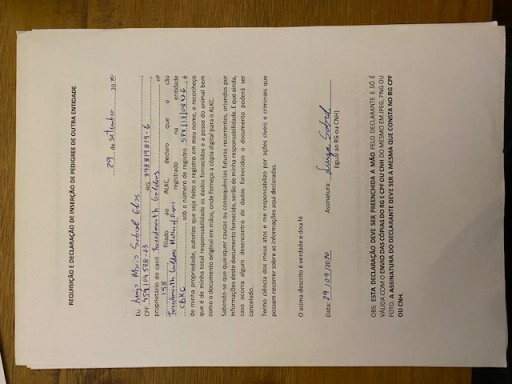 REQUISIÇÃO E DECLARAÇÃO DE INSERÇÃO DE PEDIGREE DE OUTRA ENTIDADE
29 de Setembro 2020
Eu
CPF RG
proprietário do canil Golden nº
158 filiado ao ALKC, declaro que o cão
Golden of
registrado na entidade
CBKC sob o número de registro é
de minha propriedade, autorizo que seja feito o registro em meu nome, e reconheço
que é de minha total responsabilidade os dados fornecidos e a posse do animal bem
como o documento original em mãos, onde forneço a cópia digital para o ALKC.
Sabendo-se que quaisquer causas ou consequências futuras recorrentes, oriundos por
informações deste documento fornecido, serão de minha responsabilidade. E que ainda,
caso ocorra algum desencontro de dados fornecidos o documento poderá ser
cancelado.
Tenho ciência dos meus atos e me responsabilizo por ações cíveis e criminais que
possam recorrer sobre as informações aqui declaradas.
O acima descrito é verdade e dou fé
Data: 29/09/2020 Assinatura:
(Igual ao RG ou CNH)
OBS: ESTA DECLARAÇÃO DEVE SER PREENCHIDA A MÃO PELO DECLARANTE E SÓ É
VÁLIDA COM O ENVIO DAS CÓPIAS DO RG E CPF OU CNH DO MESMO EM JPEG, PNG OU
FOTO. A ASSINATURA DO DECLARANTE DEVE SER A MESMA QUE CONSTA NO RG CPF
OU CNH.